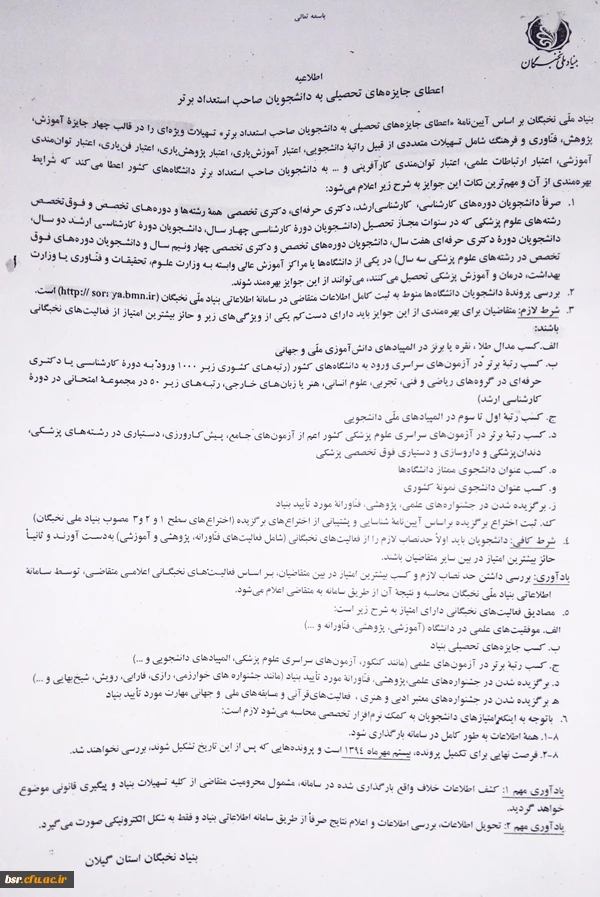 باسمه تعالی
بنیاد ملی نخبگان
اطلاعیه
اعطای جایزه‌های تحصیلی به دانشجویان صاحب استعداد برتر
بنیاد ملّی نخبگان بر اساس آیین‌نامهٔ «اعطای جایزه‌های تحصیلی به دانشجویان صاحب استعداد برتر» تسهیلات ویژه‌ای را در قالب چهار جایزهٔ آموزش،
پژوهش، فنّاوری و فرهنگ شامل تسهیلات متعددی از قبیل راتبهٔ دانشجویی، اعتبار آموزش‌یاری، اعتبار پژوهش‌یاری، اعتبار فن‌یاری، اعتبار توان‌مندی
آموزشی، اعتبار ارتباطات علمی، اعتبار توان‌مندی کارآفرینی و ... به دانشجویان صاحب استعداد برتر دانشگاه‌های کشور اعطا می‌کند که شرایط
بهره‌مندی از آن و مهم‌ترین نکات این جوایز به شرح زیر اعلام می‌شود:
۱. صرفاً دانشجویان دوره‌های کارشناسی، کارشناسی‌ارشد، دکتری حرفه‌ای، دکتری تخصصی همهٔ رشته‌ها و دوره‌های تخصص و فوق‌تخصص
رشته‌های علوم پزشکی که در سنوات مجاز تحصیل (دانشجویان دورهٔ کارشناسی چهار سال، دانشجویان دورهٔ کارشناسی ارشد دو سال،
دانشجویان دورهٔ دکتری حرفه‌ای هفت سال، دانشجویان دوره‌های تخصص و دکتری تخصصی چهار ونیم سال و دانشجویان دوره‌های فوق
تخصص در رشته‌های علوم پزشکی سه سال) در یکی از دانشگاه‌ها یا مراکز آموزش عالی وابسته به وزارت علوم، تحقیقات و فنّاوری یا وزارت
بهداشت، درمان و آموزش پزشکی تحصیل می‌کنند، می‌توانند از این جوایز بهره‌مند شوند.
۲. بررسی پروندهٔ دانشجویان دانشگاه‌ها منوط به ثبت کامل اطلاعات متقاضی در سامانهٔ اطلاعاتی بنیاد ملّی نخبگان (http:// ya.bmn.ir) است.
۳. شرط لازم: متقاضیان برای بهره‌مندی از این جوایز باید دارای دست‌کم یکی از ویژگی‌های زیر و حائز بیشترین امتیاز از فعالیت‌های نخبگانی
باشند:
الف. کسب مدال طلا، نقره یا برنز در المپیادهای دانش‌آموزی ملّی و جهانی
ب. کسب رتبهٔ برتر در آزمون‌های سراسری ورود به دانشگاه‌های کشور (رتبه‌های کشوری زیر ۱۰۰۰ ورود به دورهٔ کارشناسی یا دکتری
حرفه‌ای در گروه‌های ریاضی و فنی، تجربی، علوم انسانی، هنر یا زبان‌های خارجی، رتبه‌های زیر ۵۰ در مجموعهٔ امتحانی در دورهٔ
کارشناسی ارشد)
ج. کسب رتبهٔ اول تا سوم در المپیادهای ملّی دانشجویی
د. کسب رتبهٔ برتر در آزمون‌های سراسری علوم پزشکی کشور اعم از آزمون‌های جامع، پیش‌کارورزی، دستیاری در رشته‌های پزشکی،
دندان‌پزشکی و داروسازی و دستیاری فوق تخصصی پزشکی
ه. کسب عنوان دانشجوی ممتاز دانشگاه‌ها
و. کسب عنوان دانشجوی نمونهٔ کشوری
ز. برگزیده شدن در جشنواره‌های علمی، پژوهشی، فنّاورانهٔ مورد تأیید بنیاد
ک. ثبت اختراع برگزیده براساس آیین‌نامهٔ شناسایی و پشتیبانی از اختراع‌های برگزیده (اختراع‌های سطح ۱ و ۲ و۳ مصوب بنیاد ملی نخبگان)
۴. شرط کافی: دانشجویان باید اولاً حدنصاب لازم را از فعالیت‌های نخبگانی (شامل فعالیت‌های فنّاورانه، پژوهشی و آموزشی) به‌دست آورند و ثانیاً
حائز بیشترین امتیاز در بین سایر متقاضیان باشند.
یادآوری: بررسی داشتن حد نصاب لازم و کسب بیشترین امتیاز در بین متقاضیان، بر اساس فعالیت‌های نخبگانی اعلامی متقاضی، توسط سامانهٔ
اطلاعاتی بنیاد ملّی نخبگان محاسبه و نتیجهٔ آن از طریق سامانه به متقاضی اعلام می‌شود.
۵. مصادیق فعالیت‌های نخبگانی دارای امتیاز به شرح زیر است:
الف. موفقیت‌های علمی در دانشگاه (آموزشی، پژوهشی، فنّاورانه و ...)
ب. کسب جایزه‌های تحصیلی بنیاد
ج. کسب رتبهٔ برتر در آزمون‌های علمی (مانند کنکور، آزمون‌های سراسری علوم پزشکی، المپیادهای دانشجویی و ...)
د. برگزیده شدن در جشنواره‌های علمی،پژوهشی، فنّاورانهٔ مورد تأیید بنیاد (مانند جشنواره های خوارزمی، رازی، فارابی، رویش، شیخ‌بهایی و ...)
ه. برگزیده شدن در جشنواره‌های معتبر ادبی و هنری ، فعالیت‌های‌قرآنی و مسابقه‌های ملی و جهانی مهارت مورد تأیید بنیاد
۶. باتوجه به اینکه‌امتیازهای دانشجویان به کمک نرم‌افزار تخصصی محاسبه می‌شود لازم است:
۸-۱. همهٔ اطلاعات به طور کامل در سامانه بارگذاری شود.
۸-۲. فرصت نهایی برای تکمیل پرونده، بیستم مهرماه ۱۳۹۴ است و پرونده‌هایی که پس از این تاریخ تشکیل شوند، بررسی نخواهند شد.
یادآوری مهم ۱: کشف اطلاعات خلاف واقع بارگذاری شده در سامانه، مشمول محرومیت متقاضی از کلیه تسهیلات بنیاد و پیگیری قانونی موضوع
خواهد گردید.
یادآوری مهم ۲: تحویل اطلاعات، بررسی اطلاعات و اعلام نتایج صرفاً از طریق سامانه اطلاعاتی بنیاد و فقط به شکل الکترونیکی صورت می‌گیرد.
بنیاد نخبگان استان گیلان
bsr.cfu.ac.ir